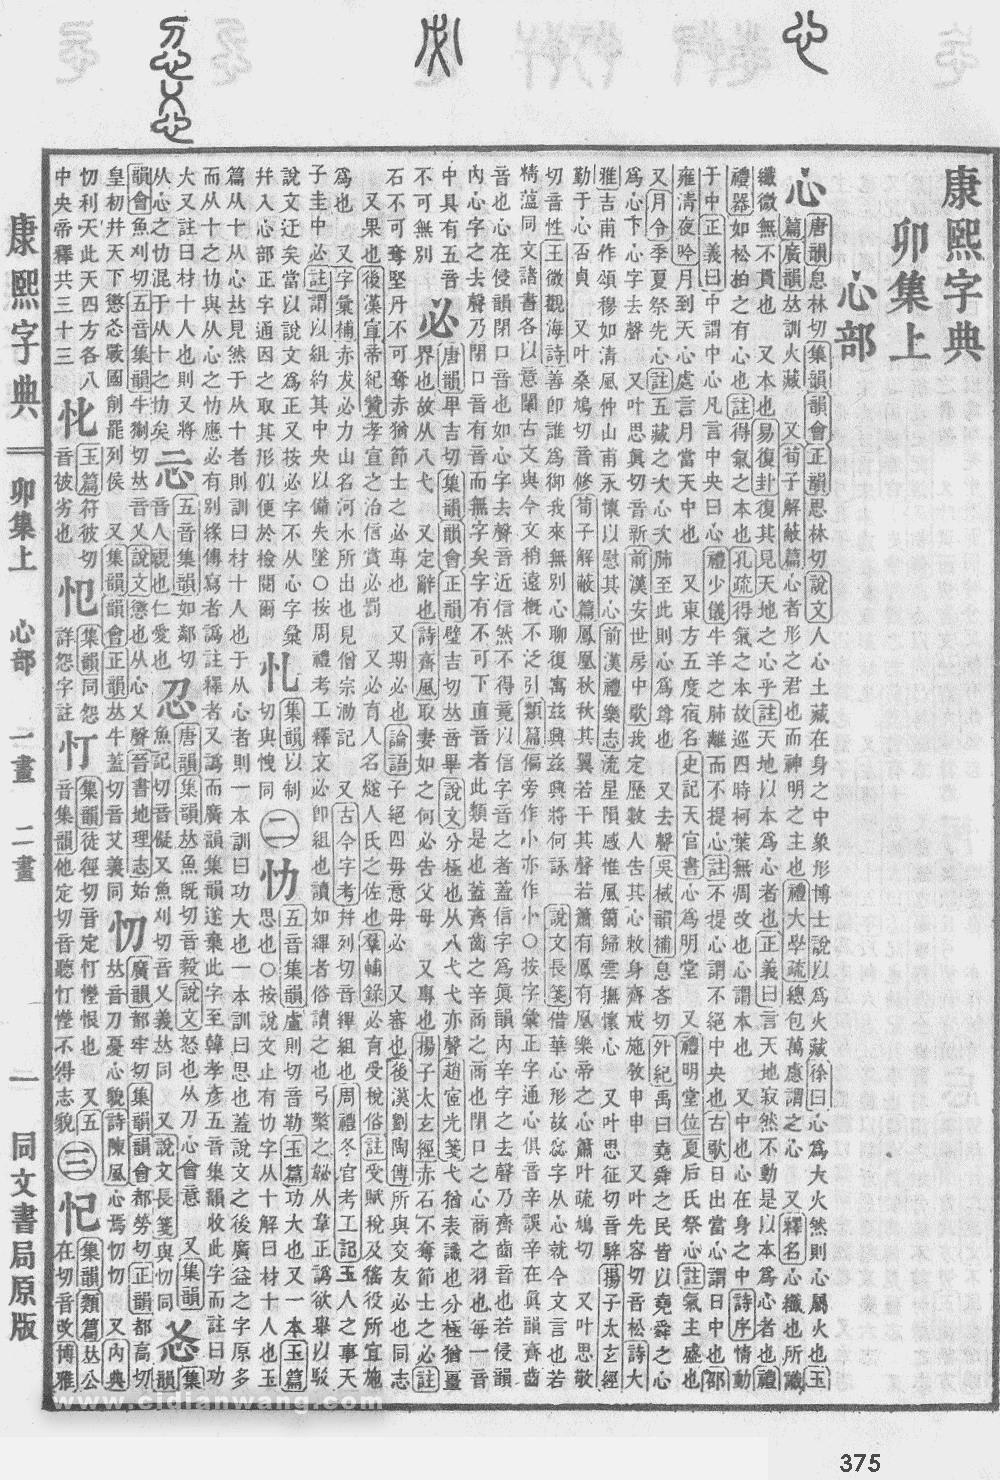 康熙字典
卯集上
心部
心
唐韻息林切集韻韻會正韻思林切說文人心土藏在身之中象形博士說以爲火藏徐曰心爲大火然則心屬火也玉
篇廣韻𠀤訓火藏 又荀子解蔽篇心者形之君也而神明之主也禮大學疏總包萬慮謂之心 又釋名心纖也所識
纖微無不貫也 又本也易復卦復其見天地之心乎註天地以本爲心者也正義曰言天地寂然不動是以本爲心者也禮
禮器如松柏之有心也註得氣之本也孔疏得氣之本故巡四時柯葉無凋改也心謂本也 又中也心在身之中詩序情動
于中正義曰中謂中心凡言中央曰心禮少儀牛羊之肺離而不提心註不提心謂不絕中央也古歌日出當心謂日中也邵
雍淸夜吟月到天心處言月當天中也 又東方五度宿名史記天官書心爲明堂 又禮明堂位夏后氏祭心註氣主盛也
又月令季夏祭先心註五藏之次心次肺至此則心爲尊也 又去聲吳棫韻補息吝切外紀禹曰堯舜之民皆以堯舜之心
爲心下心字去聲 又叶思眞切音新前漢安世房中歌我定歷數人告其心敕身齊戒施敎申申 又叶先容切音松詩大
雅吉甫作頌穆如淸風仲山甫永懷以慰其心前漢禮樂志流星隕感惟風籋歸雲撫懷心 又叶思征切音騂揚子太玄經
勤于心否貞 又叶桑鳩切音修荀子解蔽篇鳳凰秋秋其翼若干其聲若簫有鳳有凰樂帝之心簫叶疏鳩切 又叶思敬
切音性王微觀海詩善卽誰爲御我來無別心聊復寓兹興兹興將何詠 說文長箋借華心形故惢字从心就今文言也若
精薀同文諸書各以意闡古文與今文稍遠槪不泛引類篇偏旁作忄小亦作㣺○按字彙正字通心俱音辛誤辛在眞韻齊齒
音也心在侵韻閉口音也如心字去聲音近信然不得竟以信字音之者蓋信字爲眞韻內辛字之去聲乃齊齒音也若侵韻
內心字之去聲乃閉口音有音而無字矣字有不可下直音者此類是也蓋齊齒之辛商之商也閉口之心商之羽也每一音
中具有五音
不可無別
必
唐韻𤰞吉切集韻韻會正韻璧吉切𠀤音畢說文分極也从八弋弋亦聲趙宧光箋弋猶表識也分極猶畺
界也故从八弋 又定辭也詩齊風取妻如之何必告父母 又專也揚子太玄經赤石不奪節士之必註
石不可奪堅丹不可奪赤猶節士之必專也 又期必也論語子絕四毋意毋必 又審也後漢劉陶傳所與交友必也同志
又果也後漢宣帝紀贊孝宣之治信賞必罰 又必有人名燧人氏之佐也羣輔錄必育受稅俗註受賦稅及徭役所宜施
爲也 又字彙補赤犮必力山名河水所出也見僧宗泐記 又古今字考幷列切音縪組也周禮冬官考工記玉人之事天
子圭中必註謂以組約其中央以備失墜○按周禮考工釋文必卽組也讀如縪者俗讀之也弓檠之䪐从韋正譌欲舉以駁
說文迂矣當以說文爲正又按必字不从心字彙
幷入心部正字通因之取其形似便於檢閱爾
忄
集韻以制
切與愧同
二
忇
五音集韻盧則切音勒玉篇功大也又一本玉篇
思也○按說文止有忇字从十解曰材十人也玉
篇从十从心𠀤見然于从十者則訓曰材十人也于从心者則一本訓曰功大也一本訓曰思也蓋說文之後廣益之字原多
而从十之忇與从心之忇應必有別緣傳寫者譌註釋者又譌而廣韻集韻遂棄此字至韓孝彥五音集韻收此字而註曰功
大又註曰材十人也則又將
从心之忇混于从十之忇矣
忈
五音集韻如鄰切
音人親也仁愛也
忍
唐韻集韻𠀤魚旣切音毅說文怒也从刀心會意 又集韻
韻會魚刈切五音集韻牛猘切𠀤音乂說文懲也从心乂聲晉書地理志始
皇初幷天下懲忿戰國削罷列侯 又集韻韻會正韻𠀤牛蓋切音艾義同
忉
廣韻都牢切集韻韻會都勞切正韻都高切
𠀤音刀憂心貌詩陳風心焉忉忉 又內典
忉利天此天四方各八
中央帝釋共三十三
玉篇符彼切
音被劣也
集韻同怨
詳怨字註
忊
集韻徒徑切音定忊憕恨也 又五
音集韻他定切音聽忊憕不得志貌
三
忋
集韻類篇𠀤公
在切音改博雅
康熙字典 卯集上 心部 一畫 二畫 一 同文書局原版
www.cidianwang.com
375